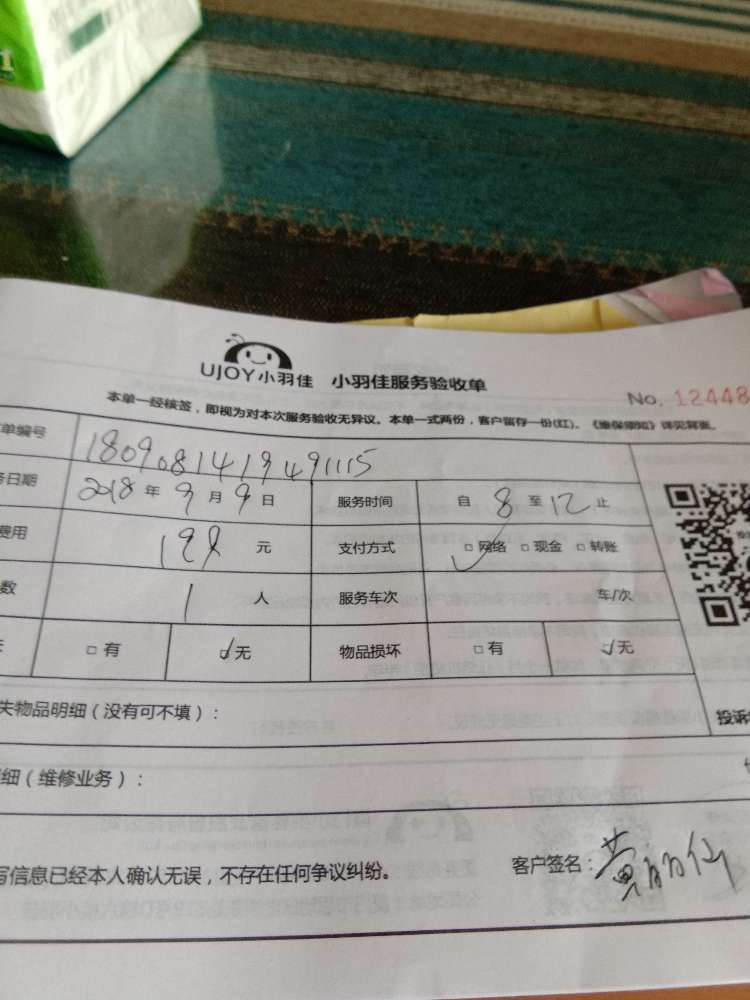 UJOY小羽佳 小羽佳服务验收单
No. 12448
本单一经核签，即视为对本次服务验收无异议。本单一式两份，客户留存一份(红)。《维保须知》详见背面。
单编号 1809081419491115
务日期 2018年9月9日 服务时间 自8至12止
费用 198元 支付方式 □网络 □现金 □转账
数 1人 服务车次 车/次
□有 ☑无 物品损坏 □有 ☑无
失物品明细（没有可不填）：
投诉
细（维修业务）：
写信息已经本人确认无误，不存在任何争议纠纷。
客户签名：黄